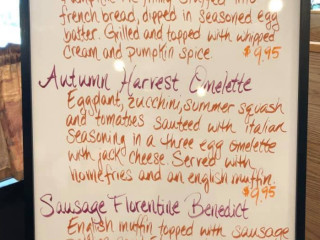 french bread, dipped in seasoned egg
batter. Grilled and topped with whipped
cream and pumpkin spice $9.95
Autumn Harvest Omelette
Eggplant, zucchini, summer squash
and tomatoes sauteed with italian
seasoning in a three egg omelette
with jack cheese. Served with
homefries and an english muffin.
$9.95
Sausage Florentine Benedict
English muffin topped with sausage